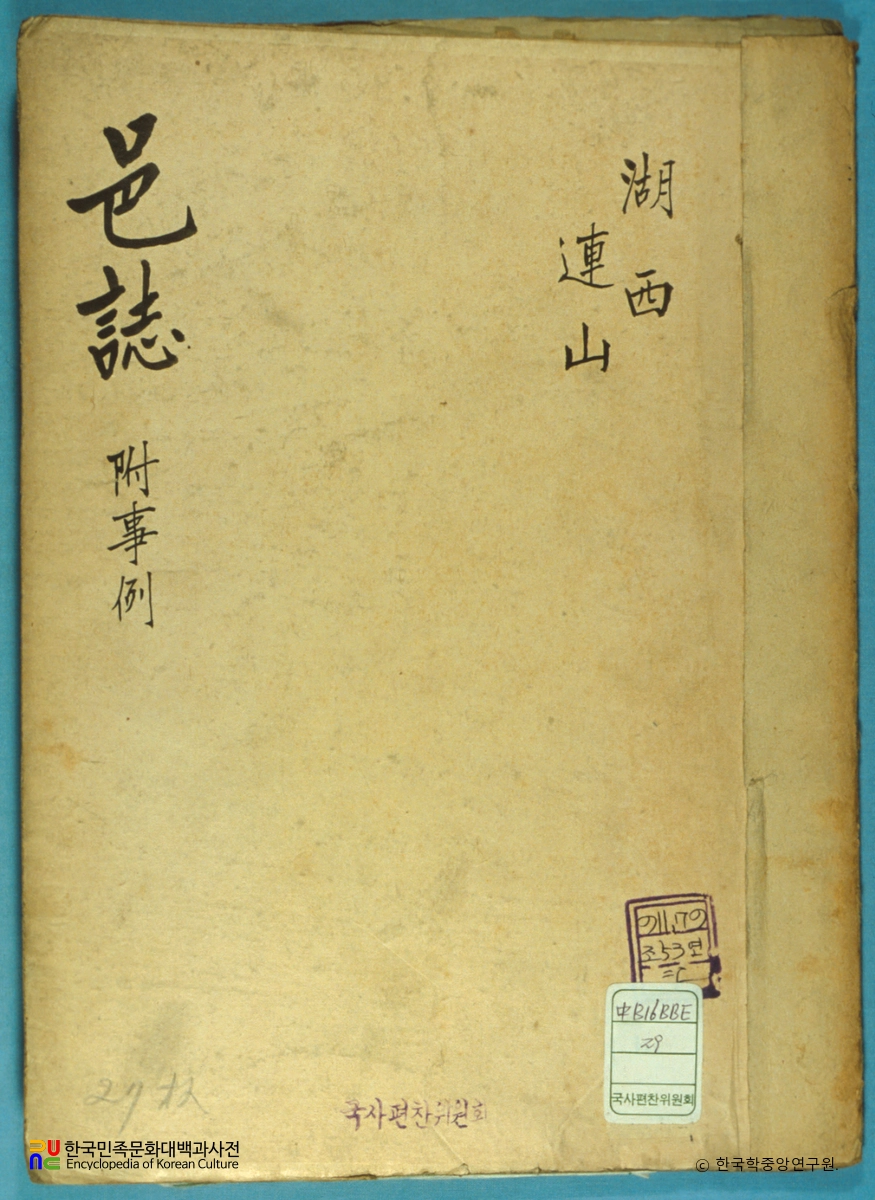 湖西
連山
邑誌 附事例
911.79
조53연
中B16BBE
29
국사편찬위원회
국사편찬위원회
27
한국민족문화대백과사전
Encyclopedia of Korean Culture
© 한국학중앙연구원